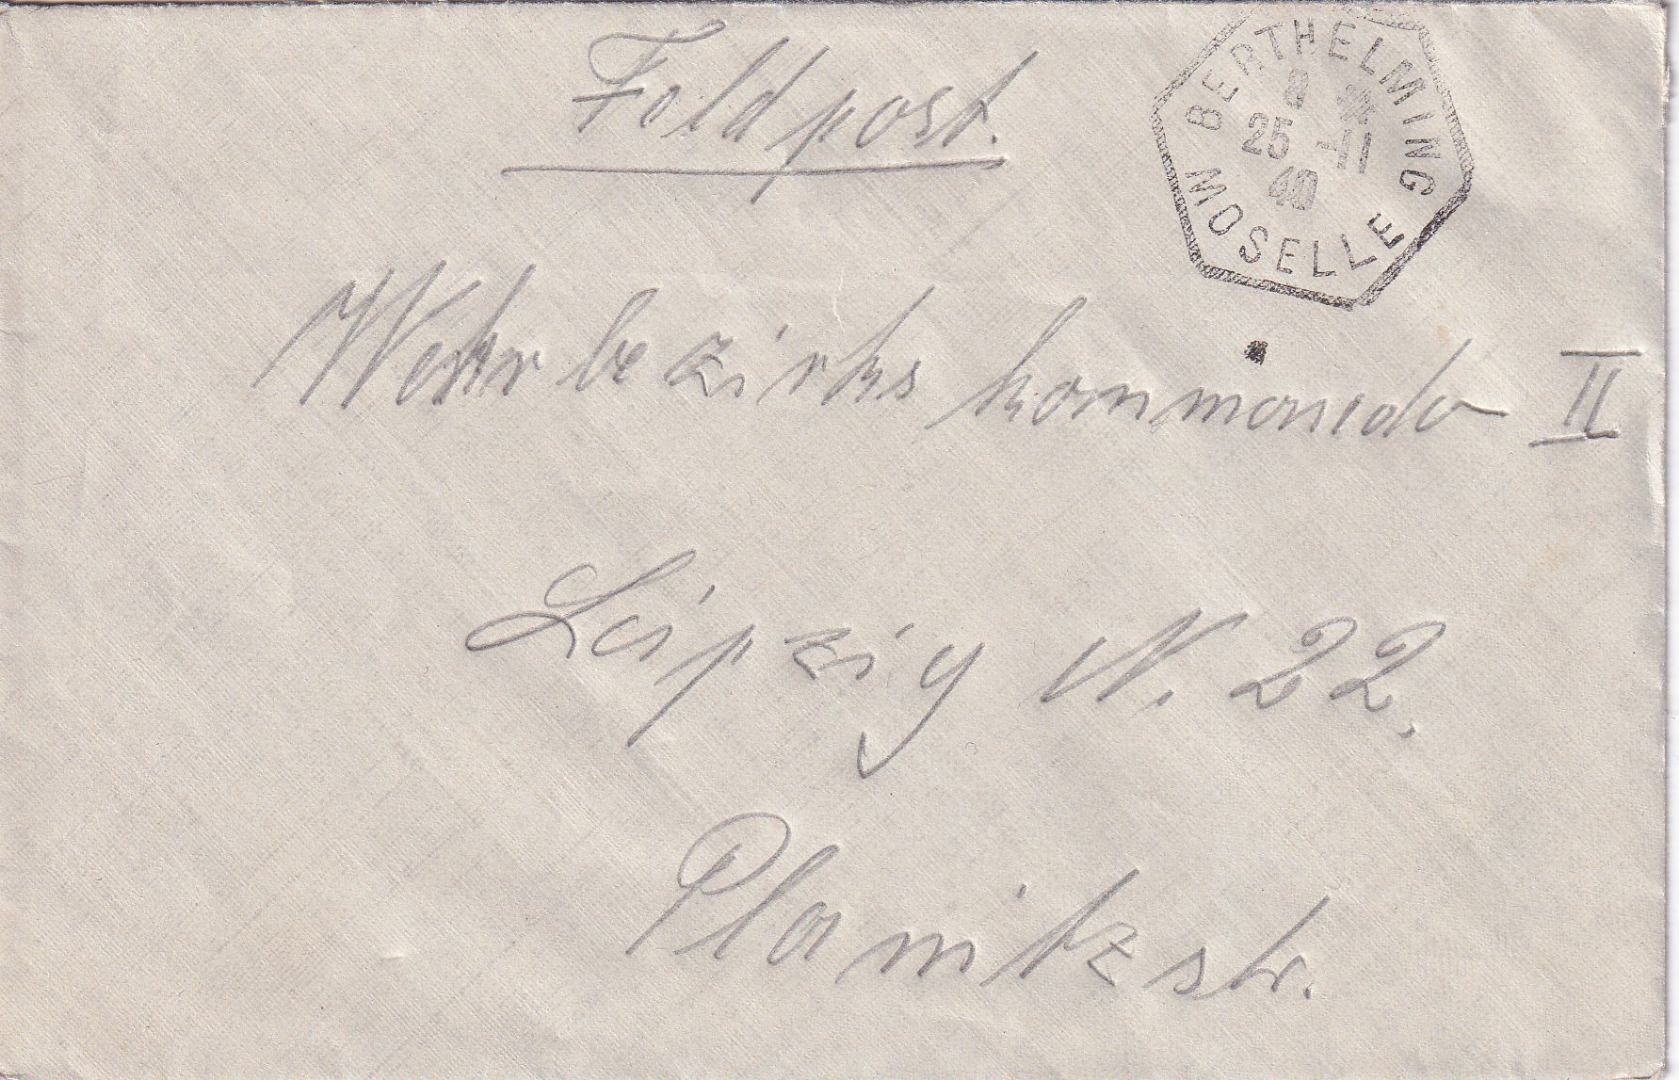 Feldpost.
BERTHELMING
8 *
25 -11
40
MOSELLE
Wehrbezirkskommando II
Leipzig N. 22.
Planitzstr.